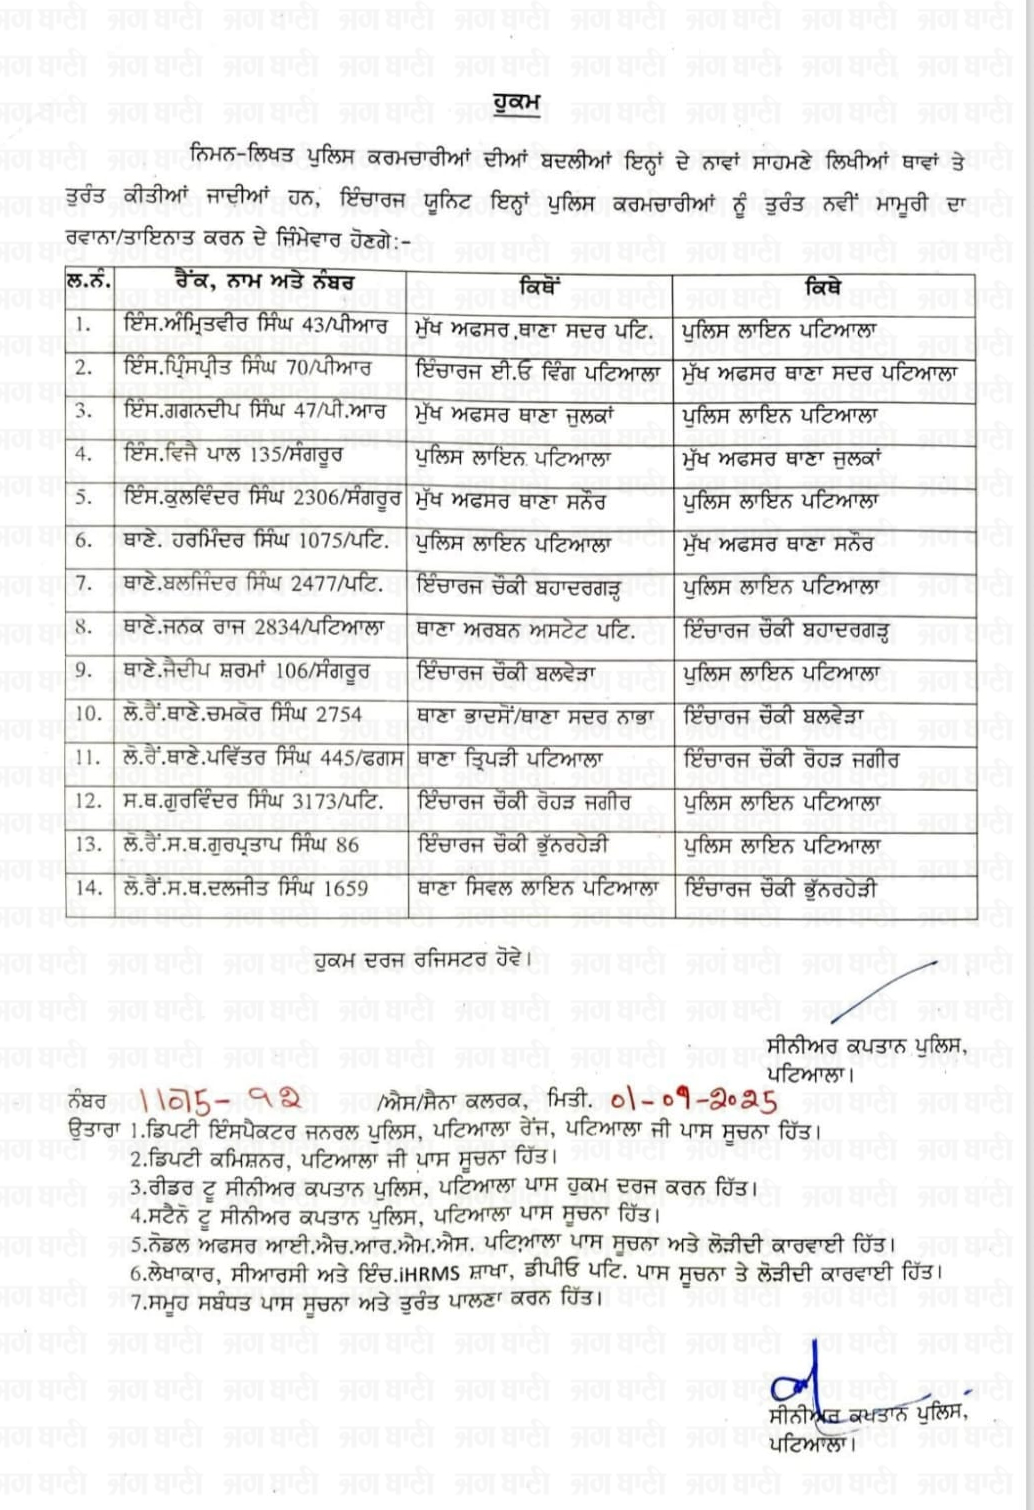 ਹੁਕਮ
ਨਿਮਨ-ਲਿਖਤ ਪੁਲਿਸ ਕਰਮਚਾਰੀਆਂ ਦੀਆਂ ਬਦਲੀਆਂ ਇਨ੍ਹਾਂ ਦੇ ਨਾਵਾਂ ਸਾਹਮਣੇ ਲਿਖੀਆਂ ਥਾਵਾਂ ਤੇ
ਤੁਰੰਤ ਕੀਤੀਆਂ ਜਾਦੀਆਂ ਹਨ, ਇੰਚਾਰਜ ਯੂਨਿਟ ਇਨ੍ਹਾਂ ਪੁਲਿਸ ਕਰਮਚਾਰੀਆਂ ਨੂੰ ਤੁਰੰਤ ਨਵੀਂ ਮਾਮੂਰੀ ਦਾ
ਰਵਾਨਾ/ਤਾਇਨਾਤ ਕਰਨ ਦੇ ਜਿੰਮੇਵਾਰ ਹੋਣਗੇ:-
ਲ.ਨੰ. ਰੈਂਕ, ਨਾਮ ਅਤੇ ਨੰਬਰ ਕਿਥੋਂ ਕਿਥੇ
1. ਇੰਸ.ਅੰਮ੍ਰਿਤਵੀਰ ਸਿੰਘ 43/ਪੀਆਰ ਮੁੱਖ ਅਫਸਰ ਥਾਣਾ ਸਦਰ ਪਟਿ. ਪੁਲਿਸ ਲਾਇਨ ਪਟਿਆਲਾ
2. ਇੰਸ.ਪ੍ਰਿੰਸਪ੍ਰੀਤ ਸਿੰਘ 70/ਪੀਆਰ ਇੰਚਾਰਜ ਈ.ਓ ਵਿੰਗ ਪਟਿਆਲਾ ਮੁੱਖ ਅਫਸਰ ਥਾਣਾ ਸਦਰ ਪਟਿਆਲਾ
3. ਇੰਸ.ਗਗਨਦੀਪ ਸਿੰਘ 47/ਪੀ.ਆਰ ਮੁੱਖ ਅਫਸਰ ਥਾਣਾ ਜੁਲਕਾਂ ਪੁਲਿਸ ਲਾਇਨ ਪਟਿਆਲਾ
4. ਇੰਸ.ਵਿਜੈ ਪਾਲ 135/ਸੰਗਰੂਰ ਪੁਲਿਸ ਲਾਇਨ ਪਟਿਆਲਾ ਮੁੱਖ ਅਫਸਰ ਥਾਣਾ ਜੁਲਕਾਂ
5. ਇੰਸ.ਕੁਲਵਿੰਦਰ ਸਿੰਘ 2306/ਸੰਗਰੂਰ ਮੁੱਖ ਅਫਸਰ ਥਾਣਾ ਸਨੌਰ ਪੁਲਿਸ ਲਾਇਨ ਪਟਿਆਲਾ
6. ਥਾਣੇ. ਹਰਮਿੰਦਰ ਸਿੰਘ 1075/ਪਟਿ. ਪੁਲਿਸ ਲਾਇਨ ਪਟਿਆਲਾ ਮੁੱਖ ਅਫਸਰ ਥਾਣਾ ਸਨੌਰ
7. ਥਾਣੇ.ਬਲਜਿੰਦਰ ਸਿੰਘ 2477/ਪਟਿ. ਇੰਚਾਰਜ ਚੌਕੀ ਬਹਾਦਰਗੜ੍ਹ ਪੁਲਿਸ ਲਾਇਨ ਪਟਿਆਲਾ
8. ਥਾਣੇ.ਜਨਕ ਰਾਜ 2834/ਪਟਿਆਲਾ ਥਾਣਾ ਅਰਬਨ ਅਸਟੇਟ ਪਟਿ. ਇੰਚਾਰਜ ਚੌਕੀ ਬਹਾਦਰਗੜ੍ਹ
9. ਥਾਣੇ.ਜੈਦੀਪ ਸ਼ਰਮਾਂ 106/ਸੰਗਰੂਰ ਇੰਚਾਰਜ ਚੌਕੀ ਬਲਵੇੜਾ ਪੁਲਿਸ ਲਾਇਨ ਪਟਿਆਲਾ
10. ਲੋ.ਰੈਂ.ਥਾਣੇ.ਚਮਕੌਰ ਸਿੰਘ 2754 ਥਾਣਾ ਭਾਦਸੋਂ/ਥਾਣਾ ਸਦਰ ਨਾਭਾ ਇੰਚਾਰਜ ਚੌਕੀ ਬਲਵੇੜਾ
11. ਲੋ.ਰੈਂ.ਥਾਣੇ.ਪਵਿੱਤਰ ਸਿੰਘ 445/ਫਗਸ ਥਾਣਾ ਤ੍ਰਿਪੜੀ ਪਟਿਆਲਾ ਇੰਚਾਰਜ ਚੌਕੀ ਰੋਹੜ ਜਗੀਰ
12. ਸ.ਥ.ਗੁਰਵਿੰਦਰ ਸਿੰਘ 3173/ਪਟਿ. ਇੰਚਾਰਜ ਚੌਕੀ ਰੋਹੜ ਜਗੀਰ ਪੁਲਿਸ ਲਾਇਨ ਪਟਿਆਲਾ
13. ਲੋ.ਰੈਂ.ਸ.ਥ.ਗੁਰਪ੍ਰਤਾਪ ਸਿੰਘ 86 ਇੰਚਾਰਜ ਚੌਕੀ ਭੁੱਨਰਹੇੜੀ ਪੁਲਿਸ ਲਾਇਨ ਪਟਿਆਲਾ
14. ਲੋ.ਰੈਂ.ਸ.ਥ.ਦਲਜੀਤ ਸਿੰਘ 1659 ਥਾਣਾ ਸਿਵਲ ਲਾਇਨ ਪਟਿਆਲਾ ਇੰਚਾਰਜ ਚੌਕੀ ਭੁੱਨਰਹੇੜੀ
ਹੁਕਮ ਦਰਜ ਰਜਿਸਟਰ ਹੋਵੇ।
ਸੀਨੀਅਰ ਕਪਤਾਨ ਪੁਲਿਸ,
ਪਟਿਆਲਾ।
ਨੰਬਰ /ਐਸ/ਸੈਨਾ ਕਲਰਕ, ਮਿਤੀ. 01-09-2025
ਉਤਾਰਾ 1.ਡਿਪਟੀ ਇੰਸਪੈਕਟਰ ਜਨਰਲ ਪੁਲਿਸ, ਪਟਿਆਲਾ ਰੇਂਜ, ਪਟਿਆਲਾ ਜੀ ਪਾਸ ਸੂਚਨਾ ਹਿੱਤ।
2.ਡਿਪਟੀ ਕਮਿਸ਼ਨਰ, ਪਟਿਆਲਾ ਜੀ ਪਾਸ ਸੂਚਨਾ ਹਿੱਤ।
3.ਰੀਡਰ ਟੂ ਸੀਨੀਅਰ ਕਪਤਾਨ ਪੁਲਿਸ, ਪਟਿਆਲਾ ਪਾਸ ਹੁਕਮ ਦਰਜ ਕਰਨ ਹਿੱਤ।
4.ਸਟੈਨੋ ਟੂ ਸੀਨੀਅਰ ਕਪਤਾਨ ਪੁਲਿਸ, ਪਟਿਆਲਾ ਪਾਸ ਸੂਚਨਾ ਹਿੱਤ।
5.ਨੋਡਲ ਅਫਸਰ ਆਈ.ਐਚ.ਆਰ.ਐਮ.ਐਸ. ਪਟਿਆਲਾ ਪਾਸ ਸੂਚਨਾ ਅਤੇ ਲੋੜੀਦੀ ਕਾਰਵਾਈ ਹਿੱਤ।
6.ਲੇਖਾਕਾਰ, ਸੀਆਰਸੀ ਅਤੇ ਇੰਚ.iHRMS ਸ਼ਾਖਾ, ਡੀਪੀਓ ਪਟਿ. ਪਾਸ ਸੂਚਨਾ ਤੇ ਲੋੜੀਦੀ ਕਾਰਵਾਈ ਹਿੱਤ।
7.ਸਮੂਹ ਸਬੰਧਤ ਪਾਸ ਸੂਚਨਾ ਅਤੇ ਤੁਰੰਤ ਪਾਲਣਾ ਕਰਨ ਹਿੱਤ।
ਸੀਨੀਅਰ ਕਪਤਾਨ ਪੁਲਿਸ,
ਪਟਿਆਲਾ।